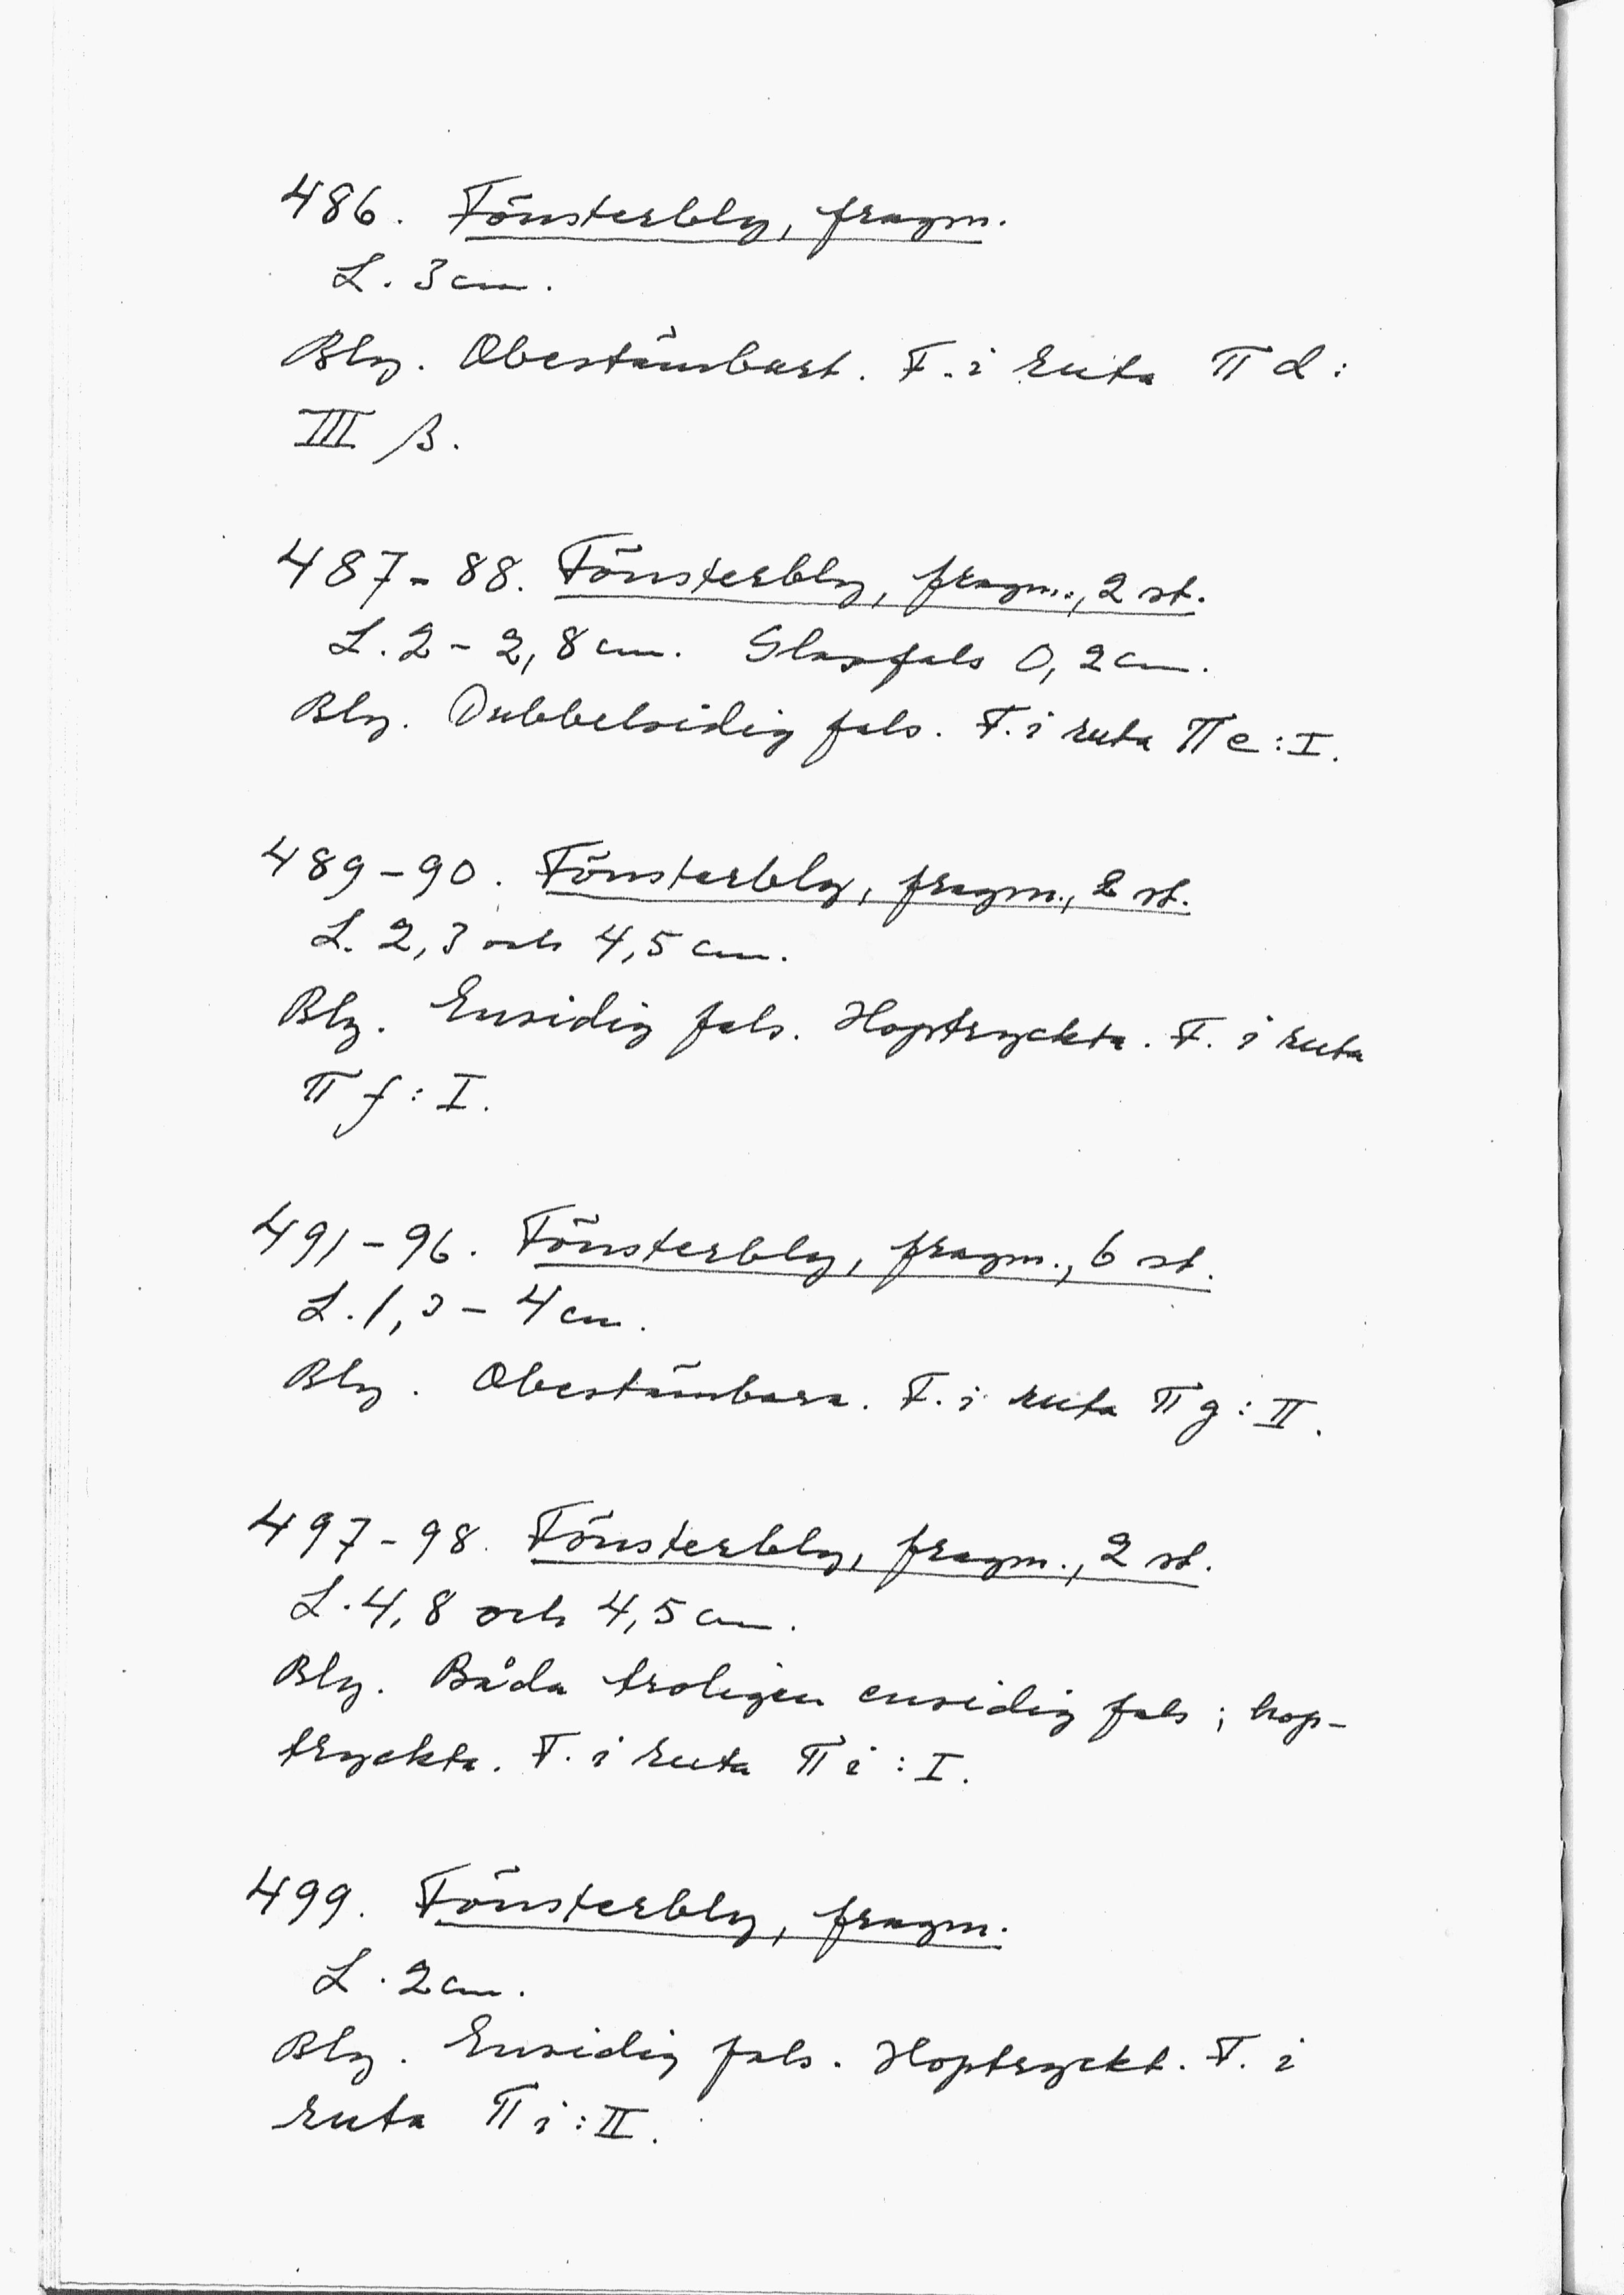 486. Fönsterbly, fragm.
L. 3 cm.
Bly. Obestämbart. F. i ruta π d:
III β.
487-88. Fönsterbly, fragm., 2 st.
L. 2 - 2,8 cm. Glasfals 0,2 cm.
Bly. Dubbelsidig fals. F. i ruta π e:I.
489-90. Fönsterbly, fragm., 2 st.
L. 2,3 och 4,5 cm.
Bly. Ensidig fals. Hoptryckta. F. i ruta
π f:I.
491-96. Fönsterbly, fragm., 6 st.
L. 1,3 - 4 cm.
Bly. Obestämbara. F. i ruta π g:II.
497-98. Fönsterbly, fragm., 2 st.
L. 4,8 och 4,5 cm.
Bly. Båda troligen ensidig fals; hop-
tryckta. F. i ruta π i:I.
499. Fönsterbly, fragm.
L. 2 cm.
Bly. Ensidig fals. Hoptryckt. F. i
ruta π i:II.